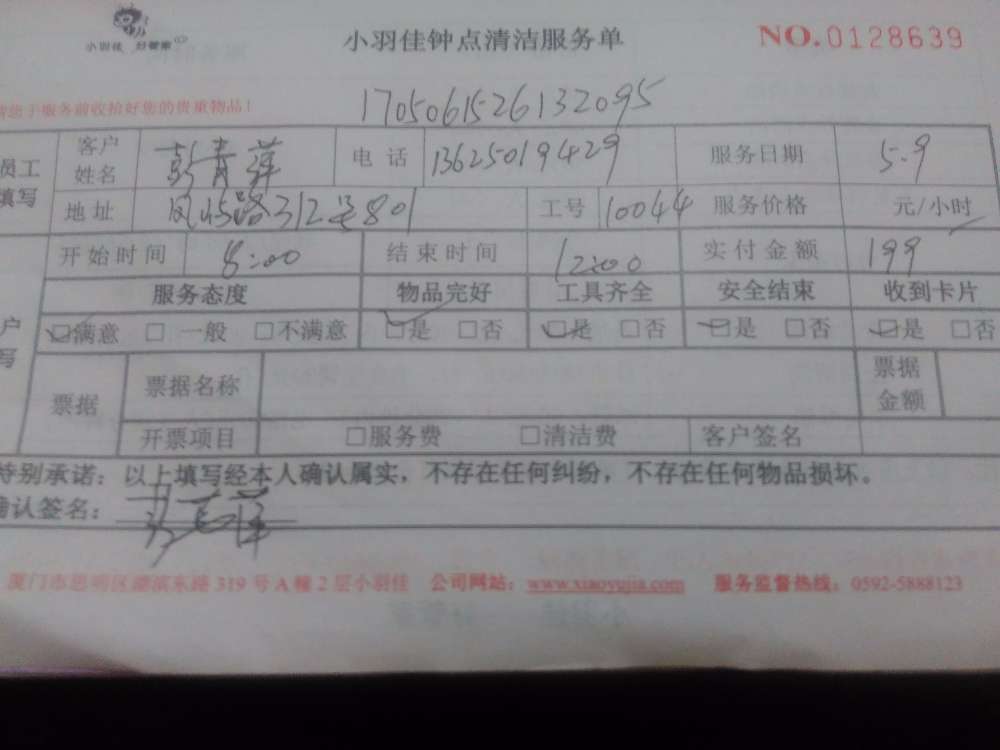 小羽佳 好管家
小羽佳钟点清洁服务单
NO.0128639
请您于服务前收拾好您的贵重物品!
1705061526132095
员工填写 客户姓名 彭青萍 电话 13625019429 服务日期 5.9
地址 312号801 工号 10044 服务价格 元/小时
开始时间 8:00 结束时间 12:00 实付金额 199
服务态度 物品完好 工具齐全 安全结束 收到卡片
户写 □满意 □一般 □不满意 □是 □否 □是 □否 □是 □否 □是 □否
票据 票据名称 票据金额
开票项目 □服务费 □清洁费 客户签名
特别承诺：以上填写经本人确认属实，不存在任何纠纷，不存在任何物品损坏。
确认签名： 彭青萍
厦门市思明区湖滨东路 319 号 A 幢 2 层小羽佳 公司网站：www.xiaoyujia.com 服务监督热线：0592-5888123